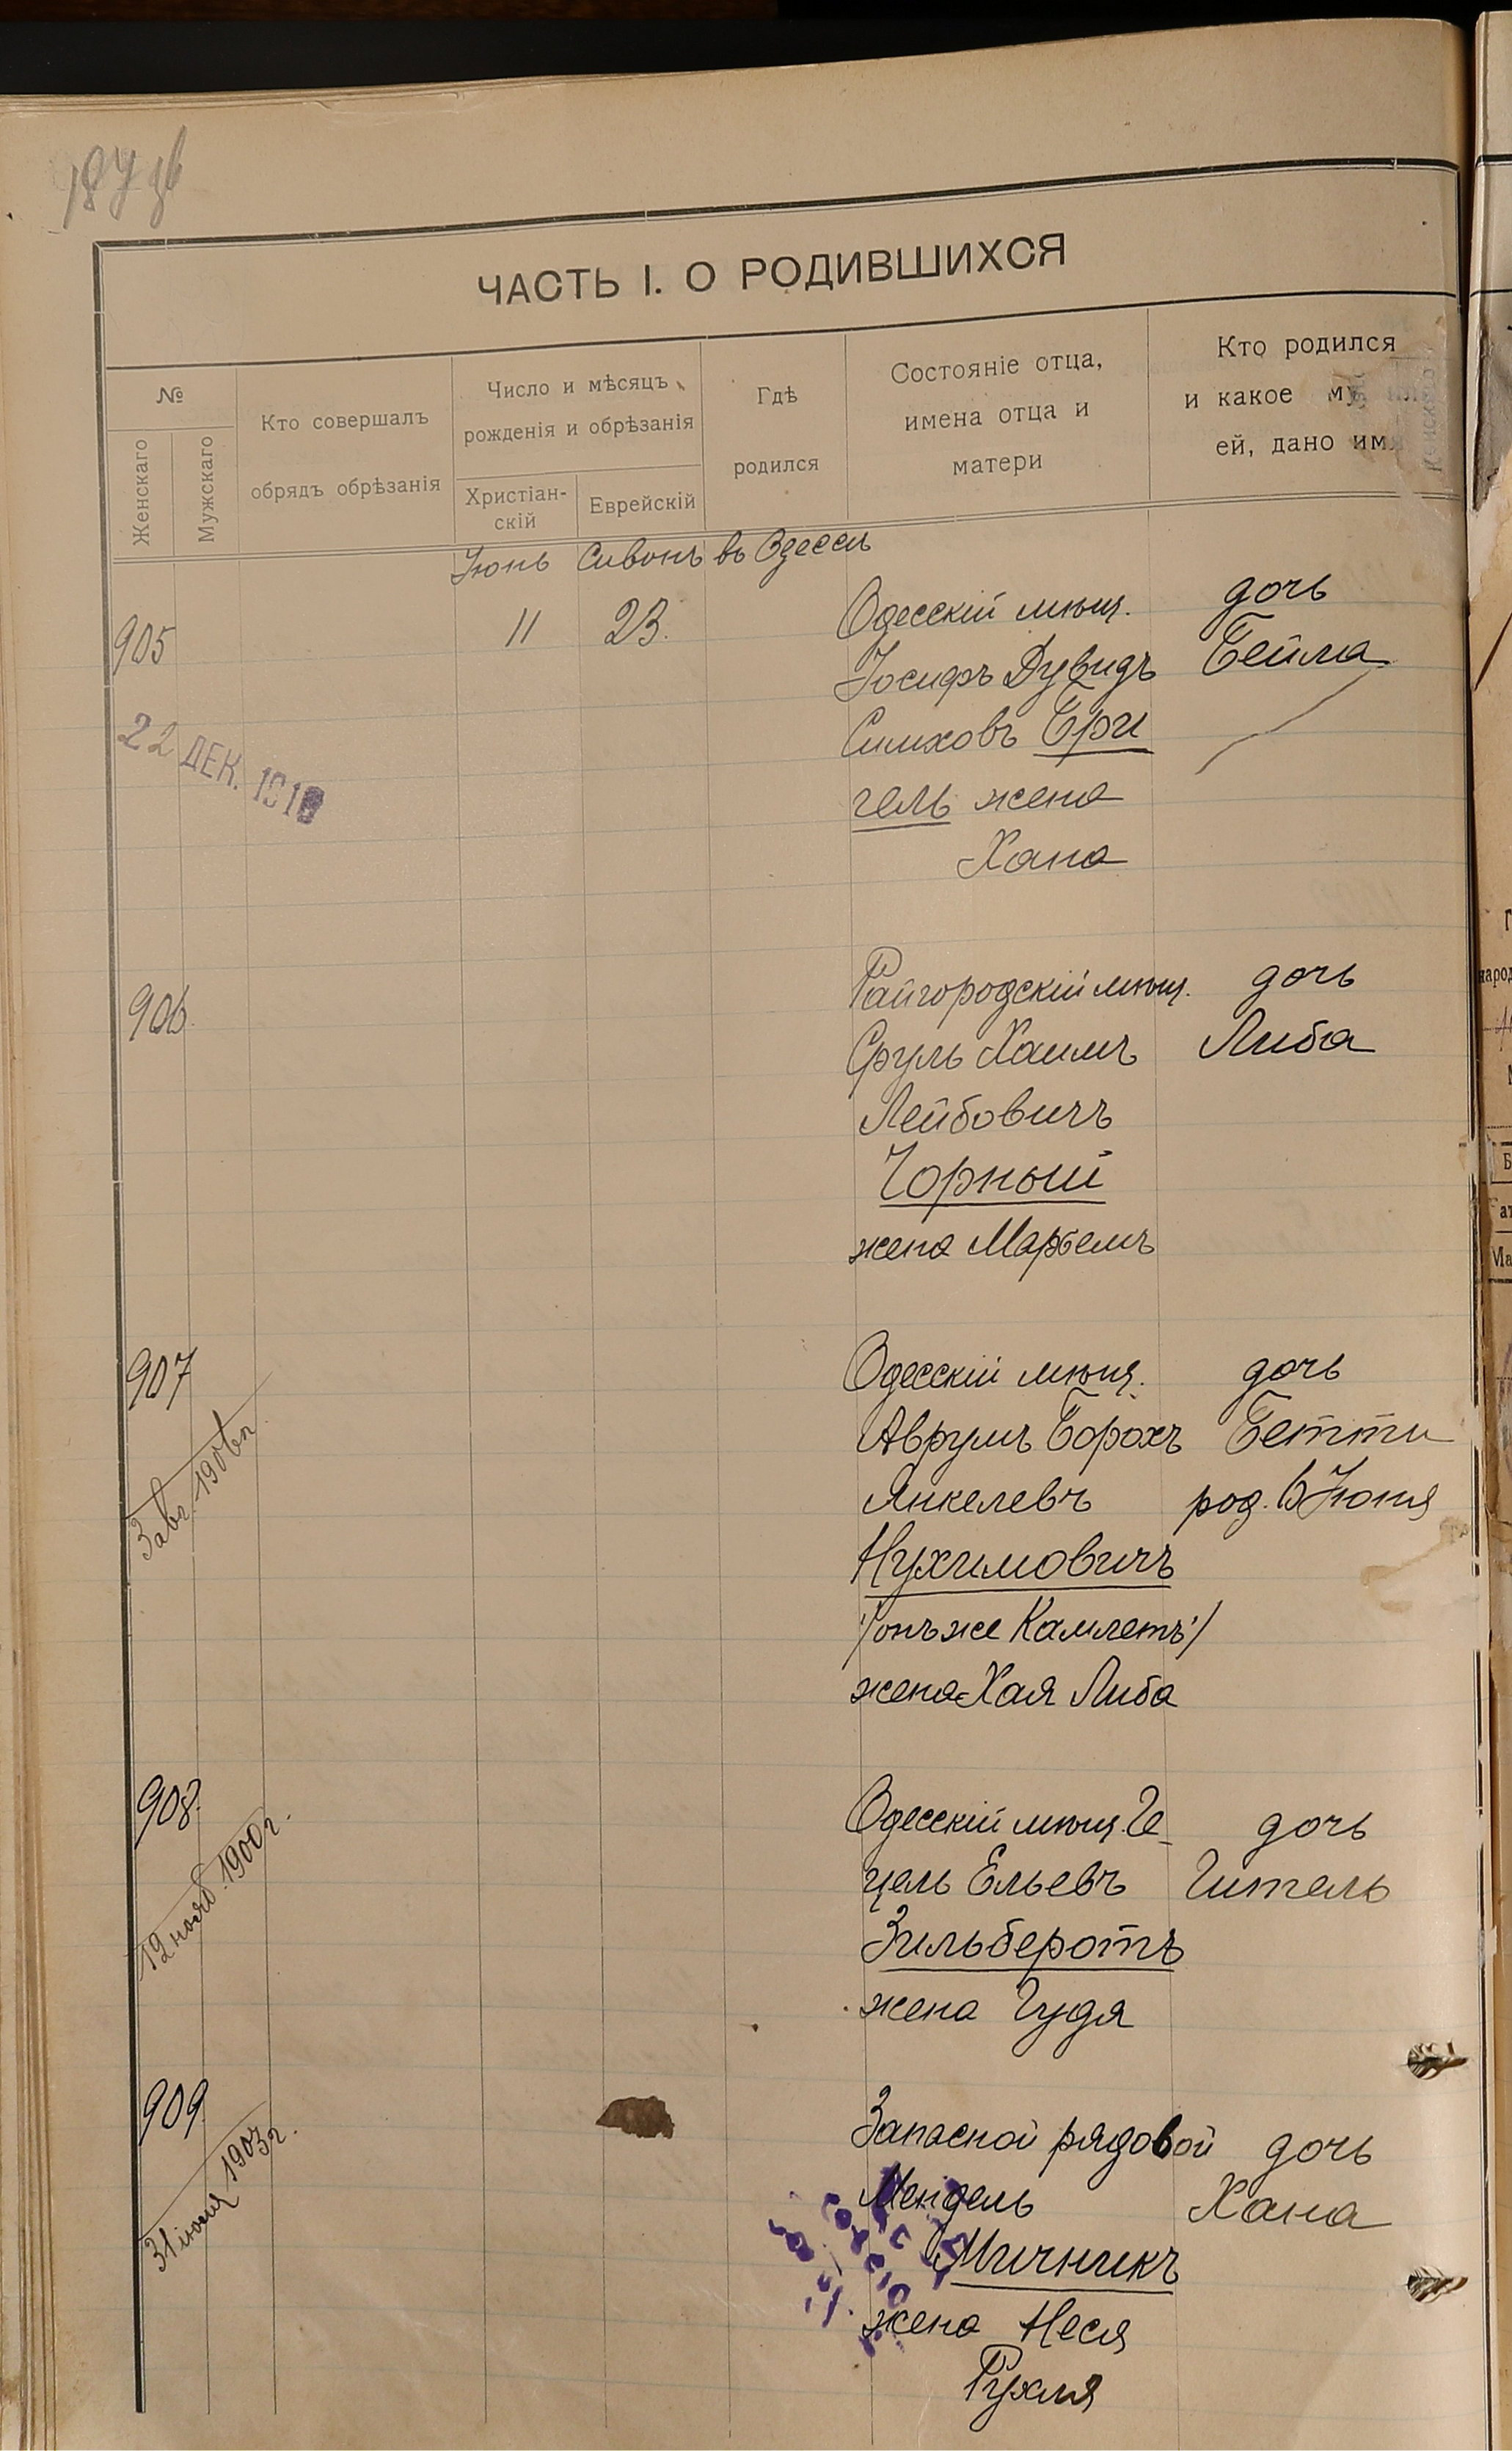 187 зв
ЧАСТЬ I. О РОДИВШИХСЯ
№
Женскаго
Мужскаго
Кто совершалъ
обрядъ обрѣзанія
Число и мѣсяцъ
рожденія и обрѣзанія
Христіан-
скій
Еврейскій
Гдѣ
родился
Состояніе отца,
имена отца и
матери
Кто родился
и какое
ей, дано имя
Іюнь Сивонъ въ Одессѣ
905 11 23. Одесскій мѣщ. дочь
Іосифъ Дувидъ Бейла
Симховъ Бри
гель жена
Хана
22 ДЕК. 191
906. Райгородскій мѣщ. дочь
Сруль Хаимъ Либа
Лейбовичъ
Чорный
жена Марьемъ
907 Одесскій мѣщ. дочь
Аврумъ Борохъ Бетти
Янкелевъ род. 6 Іюня
Нухимовичъ
/онъ же Камлетъ/
жена Хая Либа
3 авг. 1906 г.
908. Одесскій мѣщ. Ге
дочь
цель Ельевъ Гитель
Зильберотъ
жена Гудя
12 нояб. 1900 г.
909. Запасной рядовой дочь
Мендель Хана
Мичникъ
жена Неся
Рухля
31 1903 г.